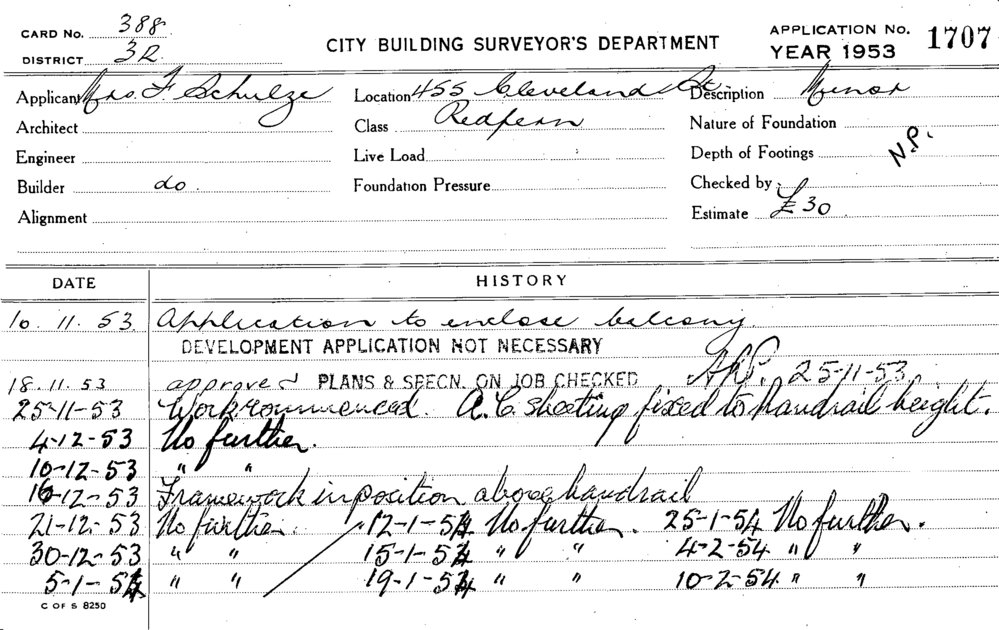 CARD No. 388
DISTRICT 3R
CITY BUILDING SURVEYOR'S DEPARTMENT
APPLICATION No. 1707
YEAR 1953
Applicant Mrs. F. Schulze
Location 455 Cleveland St.
Description Minor
Architect
Class Redfern
Nature of Foundation
Engineer
Live Load
Depth of Footings
N.P.
Builder do.
Foundation Pressure
Checked by
Alignment
Estimate £30
DATE HISTORY
10.11.53 Application to enclose balcony.
DEVELOPMENT APPLICATION NOT NECESSARY
18.11.53 approved PLANS & SPECN. ON JOB CHECKED 25-11-53.
25-11-53 Work commenced. A.C. sheeting fixed to handrail height.
4-12-53 No further.
10-12-53 " "
16-12-53 Framework in position above handrail
21-12-53 No further. 12-1-54 No further. 25-1-54 No further.
30-12-53 " " 15-1-54 " " 4-2-54 " "
5-1-54 " " 19-1-54 " " 10-2-54 " "
C OF S 8250